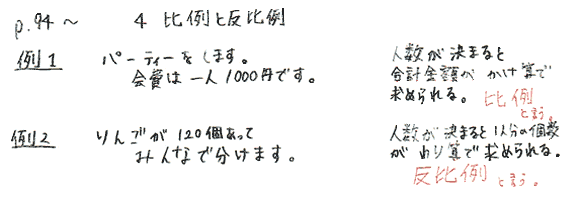 p.94～ 4 比例と反比例
例1 パーティーをします。
会費は一人1000円です。
人数が決まると
合計金額がかけ算で
求められる。比例
と言う。
例2 りんごが120個あって
みんなで分けます。
人数が決まると1人分の個数
がわり算で求められる。
反比例と言う。